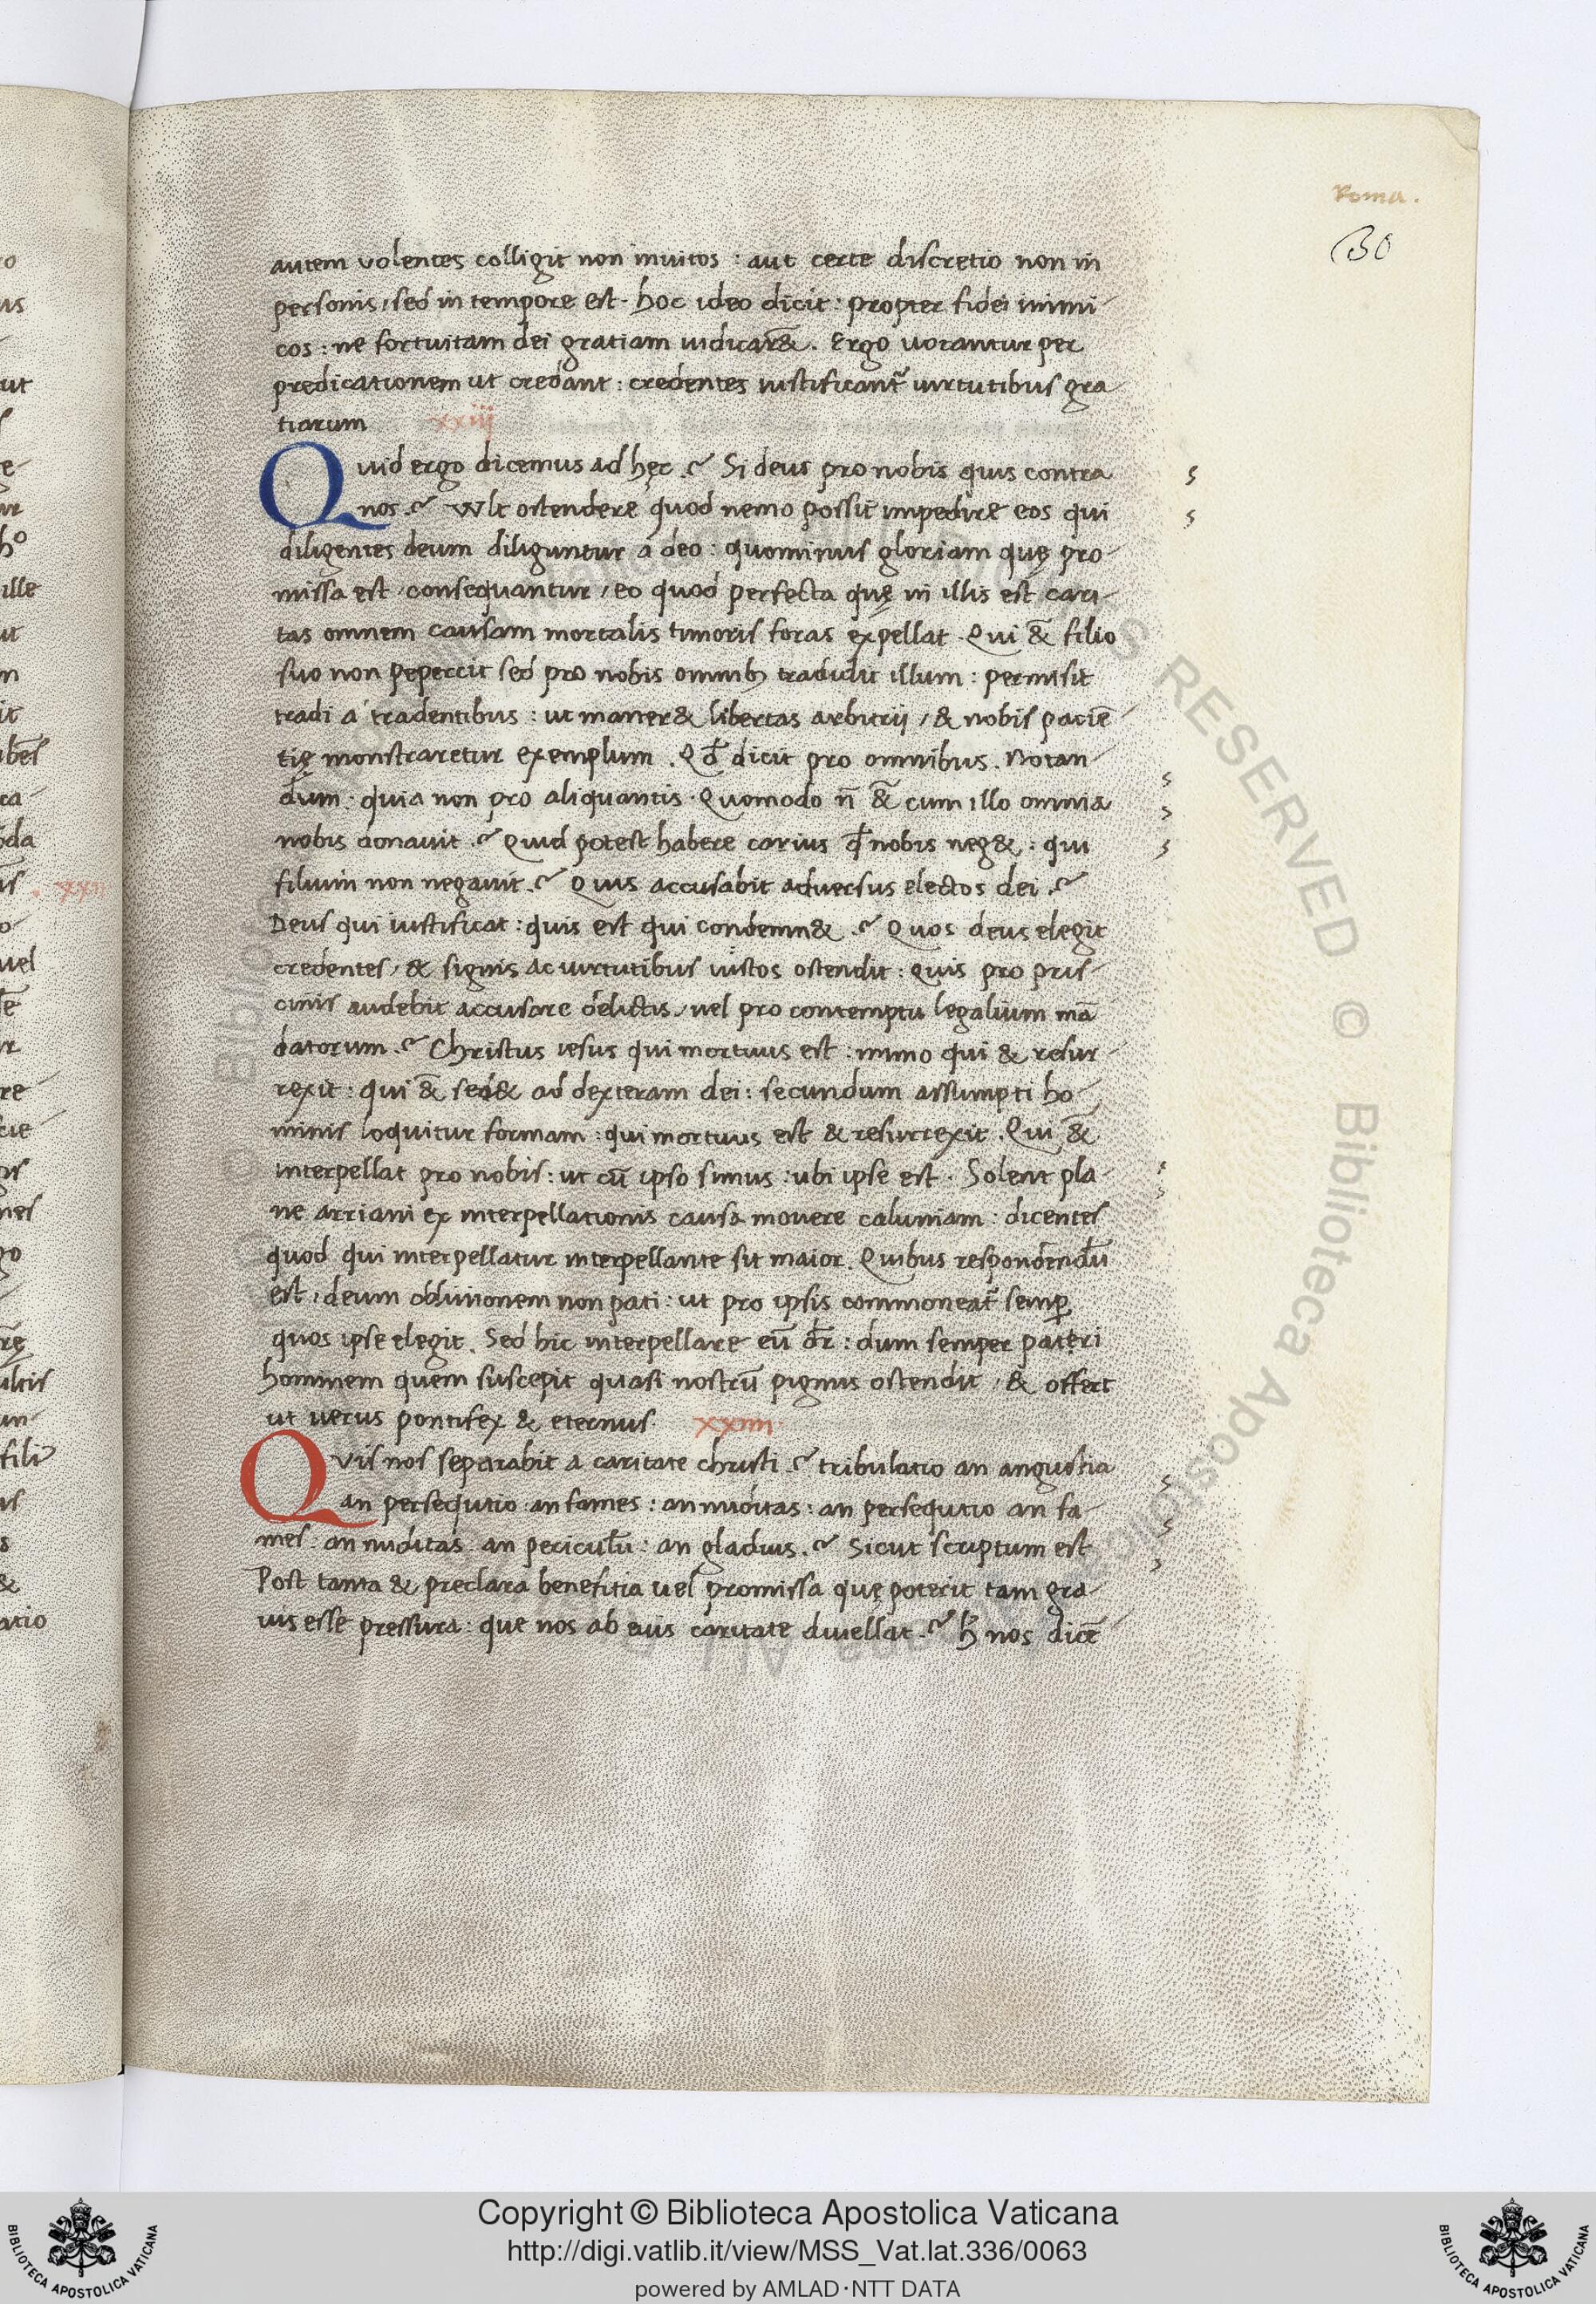 Roma.
30
autem volentes colligit non inuitos : aut certe discretio non in
personis, sed in tempore est. hoc ideo dicit : propter fidei inimi-
cos : ne fortuitam dei gratiam iudicar&̄. Ergo uocantur per
predicationem ut credant : credentes iustificant᷑ uirtutibus gra-
tiarum xxiij
Quid ergo dicemus ad hęc ? Si deus pro nobis quis contra
nos ? Vult ostendere quod nemo possit impedire eos qui
diligentes deum diliguntur a deo : quominus gloriam quę pro-
missa est, consequantur, eo quod perfecta quę in illis est cari-
tas omnem causam mortalis timoris foras expellat. Qui &̄ filio
suo non pepercit sed pro nobis omnibꝫ tradidit illum : permisit
tradi a tradentibus : ut maner& libertas arbitrij, & nobis paciē-
tię monstraretur exemplum. Qđ dicit pro omnibus. Notan-
dum : quia non pro aliquantis. Quomodo n̄ &̄ cum illo omnia
nobis donauit ? Quid potest habere carius qđ nobis neg& : qui
filium non negauit ? Quis accusabit aduersus electos dei ?
Deus qui iustificat : quis est qui condemn& ? Quos deus elegit
credentes, & signis ac uirtutibus iustos ostendit : quis pro pris-
cinis audebit accusare delictis, uel pro contemptu legalium mā-
datorum ? Christus iesus qui mortuus est : immo qui & resur-
rexit : qui &̄ sed& ad dexteram dei : secundum assumpti ho-
minis loquitur formam : qui mortuus est & resurrexit. Qui &̄
interpellat pro nobis : ut cū ipso simus : ubi ipse est. Solent pla-
ne arriani ex interpellationis causa mouere caluniam : dicentes
quod qui interpellatur interpellante sit maior. Quibus respondendū
est, deum obliuionem non pati : ut pro ipsis commoneat᷑ semꝑ
quos ipse elegit. Sed hic interpellare eū dr̄ : dum semper patri
hominem quem suscepit quasi nostrū pignus ostendit, & offert
ut uerus pontifex & eternus. xxiiii.
Quis nos separabit a caritate christi ? tribulatio an angustia
an persequtio : an fames : an nuditas : an persequtio an fa-
mes : an nuditas : an periculū : an gladius ? Sicut scriptum est
Post tanta & preclara benefitia uel promissa quę poterit tam gra-
uis esse pressura : que nos ab eius caritate diuellat ? h nos dicē-
Copyright © Biblioteca Apostolica Vaticana
http://digi.vatlib.it/view/MSS_Vat.lat.336/0063
powered by AMLAD·NTT DATA
BIBLIOTECA APOSTOLICA VATICANA
BIBLIOTECA APOSTOLICA VATICANA